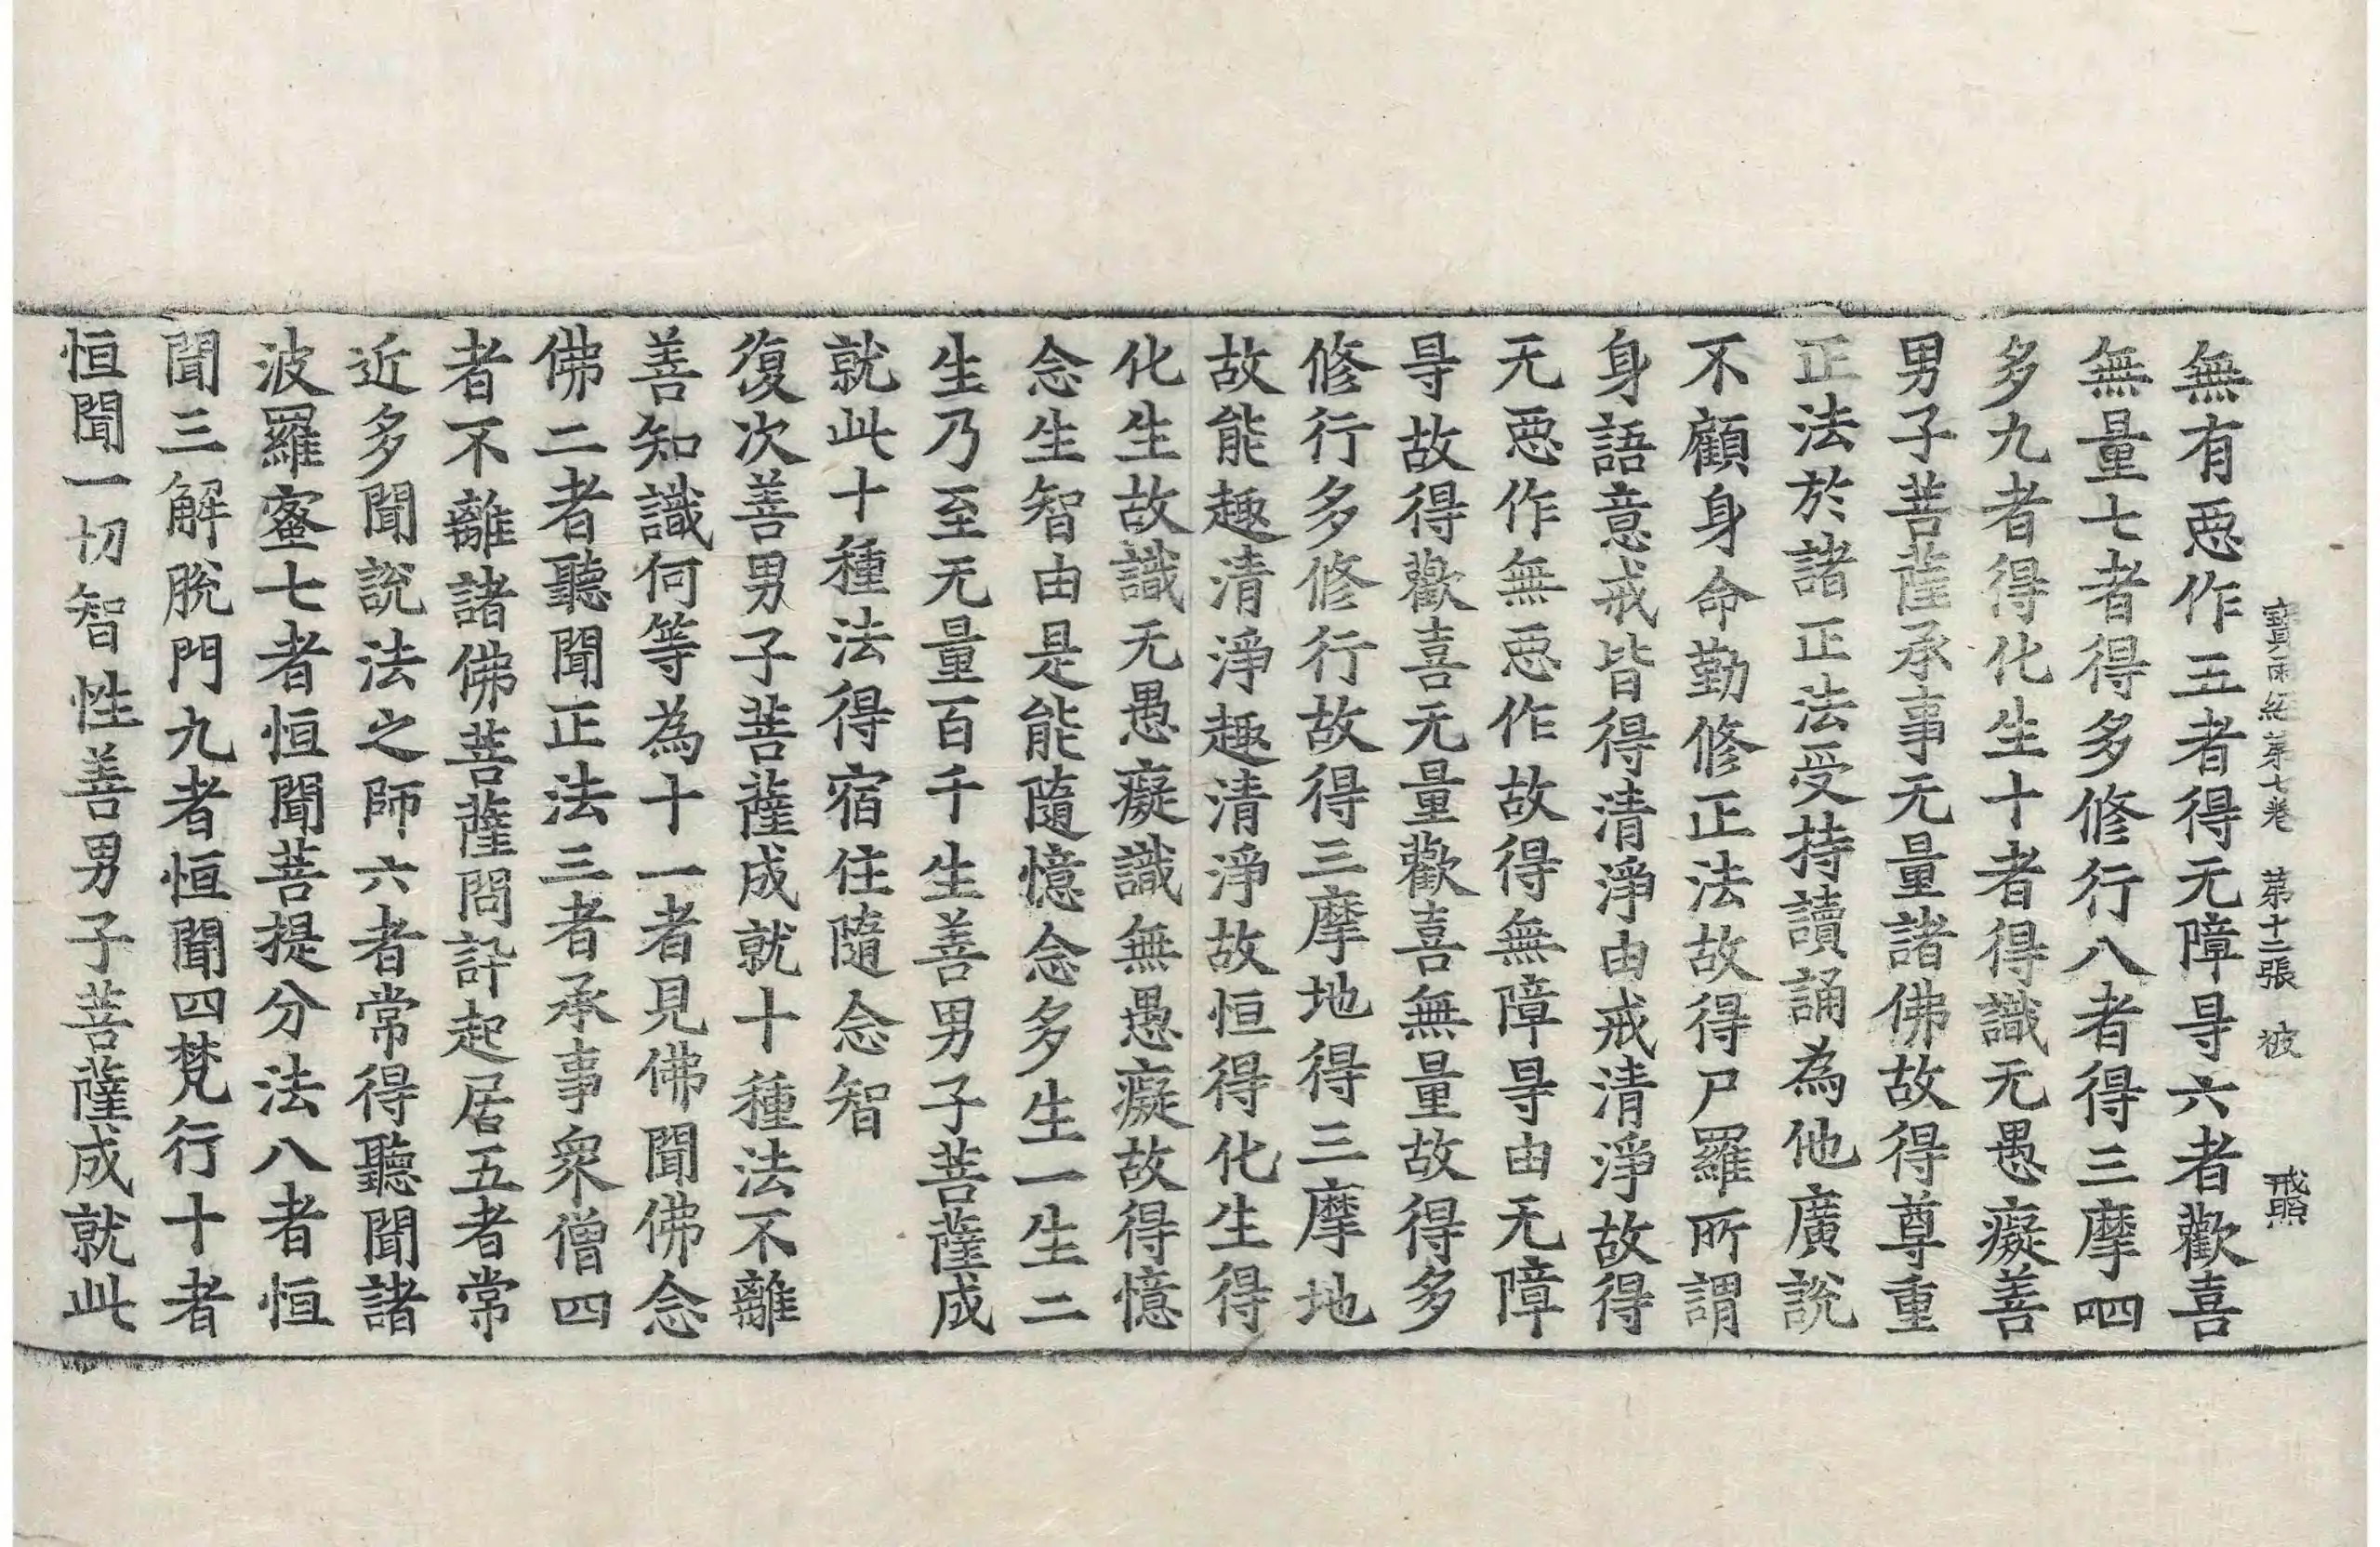 寶雨經第七卷 第十二張 彼 戒照
無有惡作五者得无障㝵六者歡喜
無量七者得多修行八者得三摩呬
多九者得化生十者得識无愚癡善
男子菩薩承事无量諸佛故得尊重
正法於諸正法受持讀誦為他廣說
不顧身命勤修正法故得尸羅所謂
身語意戒皆得清淨由戒清淨故得
无惡作無惡作故得無障㝵由无障
㝵故得歡喜无量歡喜無量故得多
修行多修行故得三摩地得三摩地
故能趣清淨趣清淨故恒得化生得
化生故識无愚癡識無愚癡故得憶
念生智由是能隨憶念多生一生二
生乃至无量百千生善男子菩薩成
就此十種法得宿住隨念智
復次善男子菩薩成就十種法不離
善知識何等為十一者見佛聞佛念
佛二者聽聞正法三者承事眾僧四
者不離諸佛菩薩問訊起居五者常
近多聞說法之師六者常得聽聞諸
波羅蜜七者恒聞菩提分法八者恒
聞三解脫門九者恒聞四梵行十者
恒聞一切智性善男子菩薩成就此